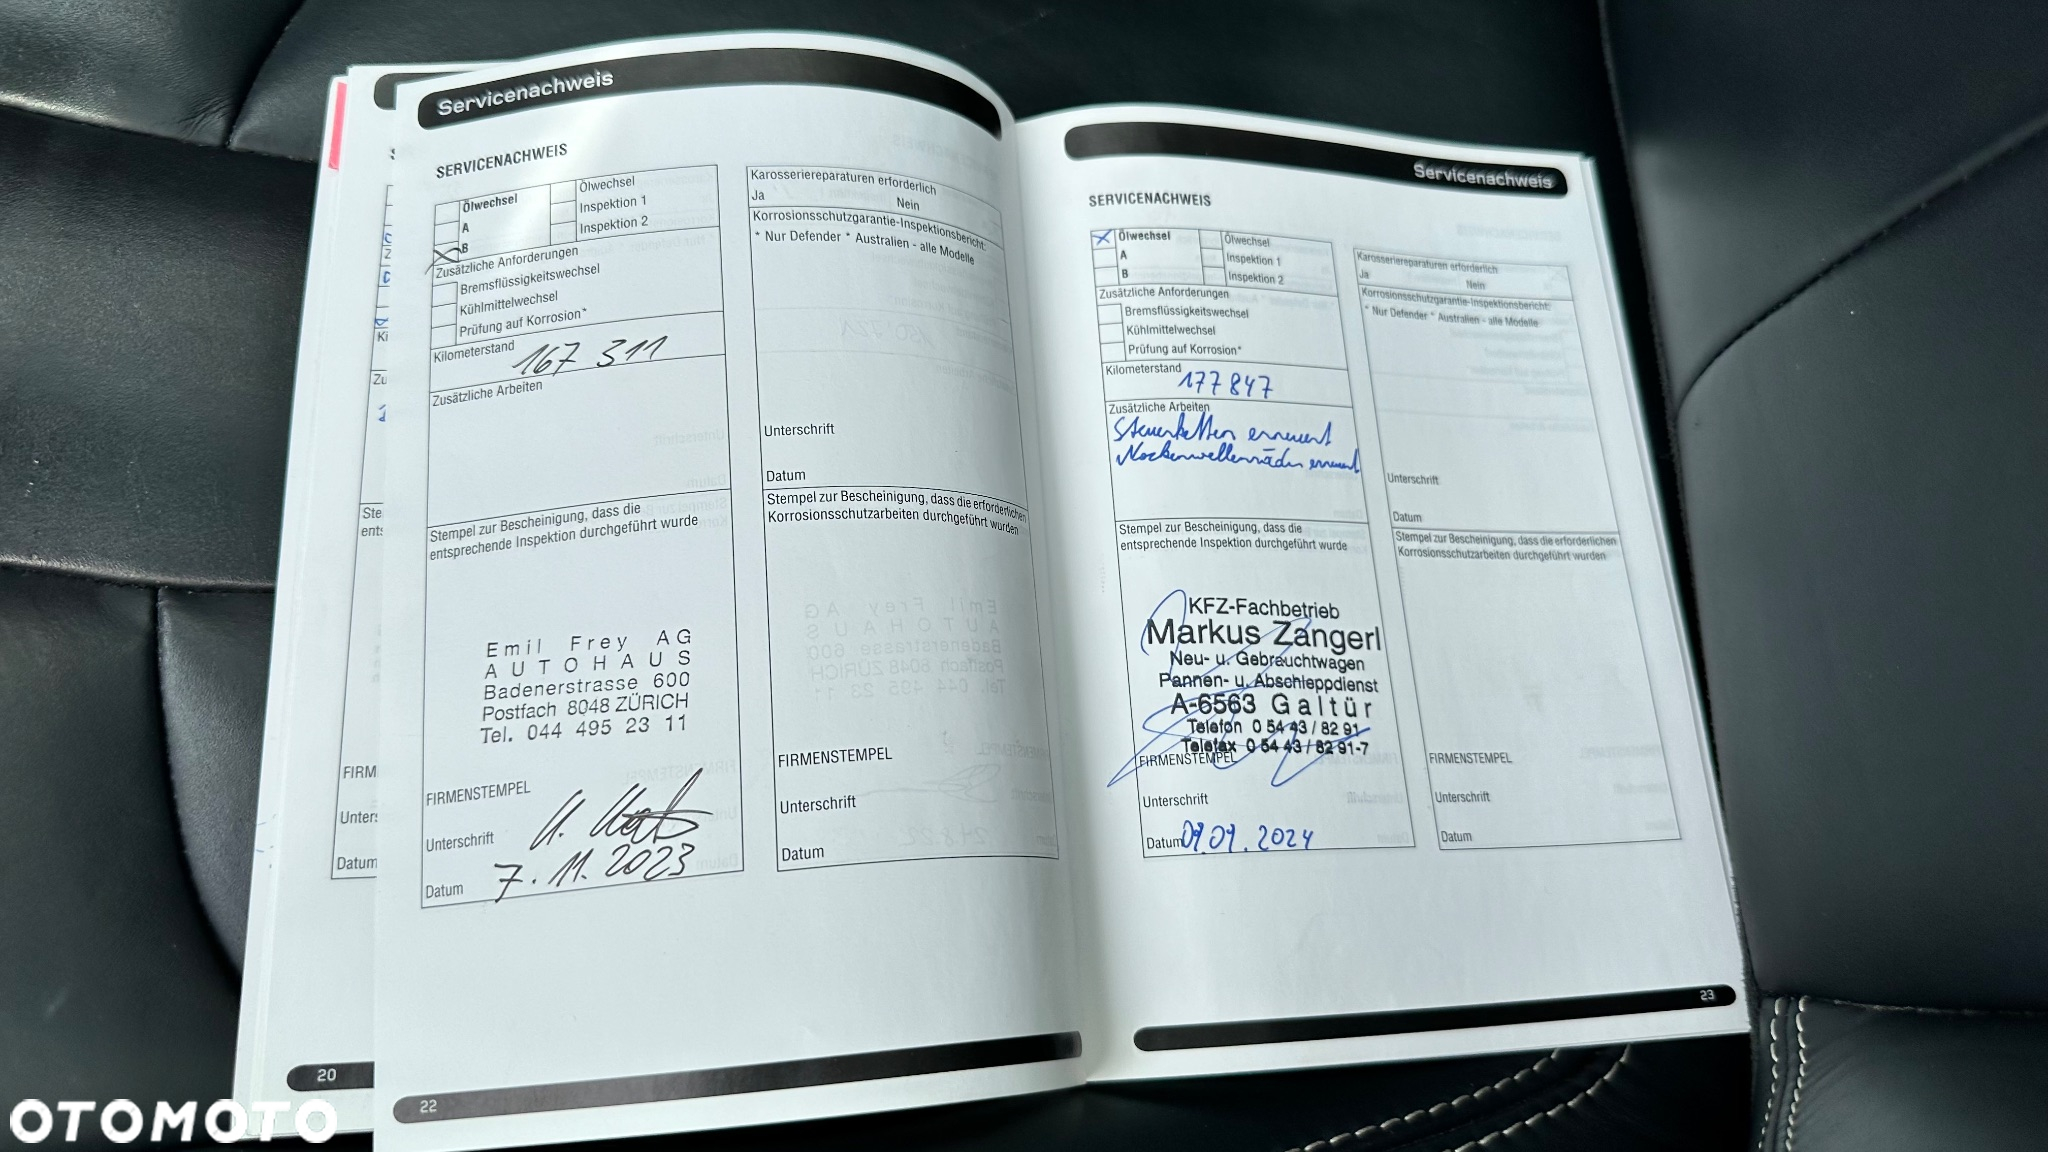 Servicenachweis
SERVICENACHWEIS
Ölwechsel
A
B
Ölwechsel
Inspektion 1
Inspektion 2
Zusätzliche Anforderungen
Bremsflüssigkeitswechsel
Kühlmittelwechsel
Prüfung auf Korrosion*
Kilometerstand
167 311
Zusätzliche Arbeiten
Stempel zur Bescheinigung, dass die
entsprechende Inspektion durchgeführt wurde
Emil Frey AG
AUTOHAUS
Badenerstrasse 600
Postfach 8048 ZÜRICH
Tel. 044 495 23 11
FIRMENSTEMPEL
Unterschrift
Datum 7.11.2023
Karosseriereparaturen erforderlich
Ja Nein
Korrosionsschutzgarantie-Inspektionsbericht:
* Nur Defender * Australien - alle Modelle
Unterschrift
Datum
Stempel zur Bescheinigung, dass die erforderlichen
Korrosionsschutzarbeiten durchgeführt wurden
FIRMENSTEMPEL
Unterschrift
Datum
22
Servicenachweis
SERVICENACHWEIS
Ölwechsel
A
B
Ölwechsel
Inspektion 1
Inspektion 2
Zusätzliche Anforderungen
Bremsflüssigkeitswechsel
Kühlmittelwechsel
Prüfung auf Korrosion*
Kilometerstand
177847
Zusätzliche Arbeiten
Steuerketten erneuert
Nockenwellenräder erneuert
Stempel zur Bescheinigung, dass die
entsprechende Inspektion durchgeführt wurde
KFZ-Fachbetrieb
Markus Zangerl
Neu- u. Gebrauchtwagen
Pannen- u. Abschleppdienst
A-6563 Galtür
Telefon 0 54 43 / 82 91
Telefax 0 54 43 / 82 91-7
FIRMENSTEMPEL
Unterschrift
Datum 09.01.2024
Karosseriereparaturen erforderlich
Ja Nein
Korrosionsschutzgarantie-Inspektionsbericht:
* Nur Defender * Australien - alle Modelle
Unterschrift
Datum
Stempel zur Bescheinigung, dass die erforderlichen
Korrosionsschutzarbeiten durchgeführt wurden
FIRMENSTEMPEL
Unterschrift
Datum
23
Ki
Zu
Ste
ents
FIRM
Unters
Datum
20
OTOMOTO